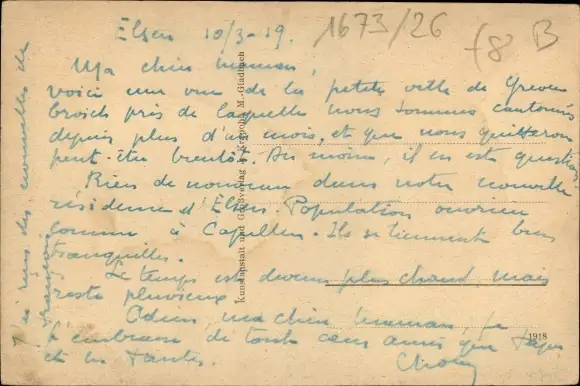 1673/26
f8 B
Elsen 10/3-19.
Ma chère maman,
voici une vue de la petite ville de Greven
broich près de laquelle nous sommes cantonnés
depuis plus d'un mois, et que nous quitterons
peut-être bientôt. Du moins, il en est question
Rien de nouveau dans notre nouvelle
résidence d'Elsen. Population ouvrière
comme à Capellen. Ils se tiennent bien
tranquilles.
Le temps est devenu plus chaud mais
reste pluvieux
Adieu, ma chère maman, je
t'embrasse de tout cœur ainsi que
et les tantes.
J'ai reçu des nouvelles de
François
Kunstanstalt und Großverlag M.-Gladbach
1918